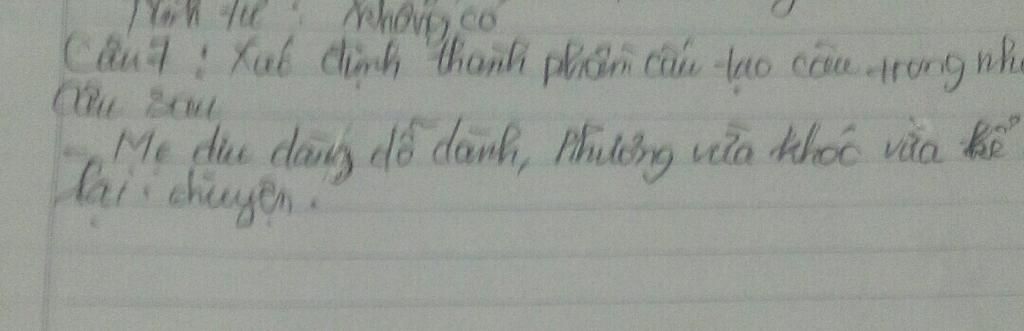 Tính từ : Không có
Câu 7 : Xác định thành phần cấu tạo câu trong nh
câu sau
- Mẹ dịu dàng dỗ dành, Phương vừa khóc vừa kể
lại chuyện.